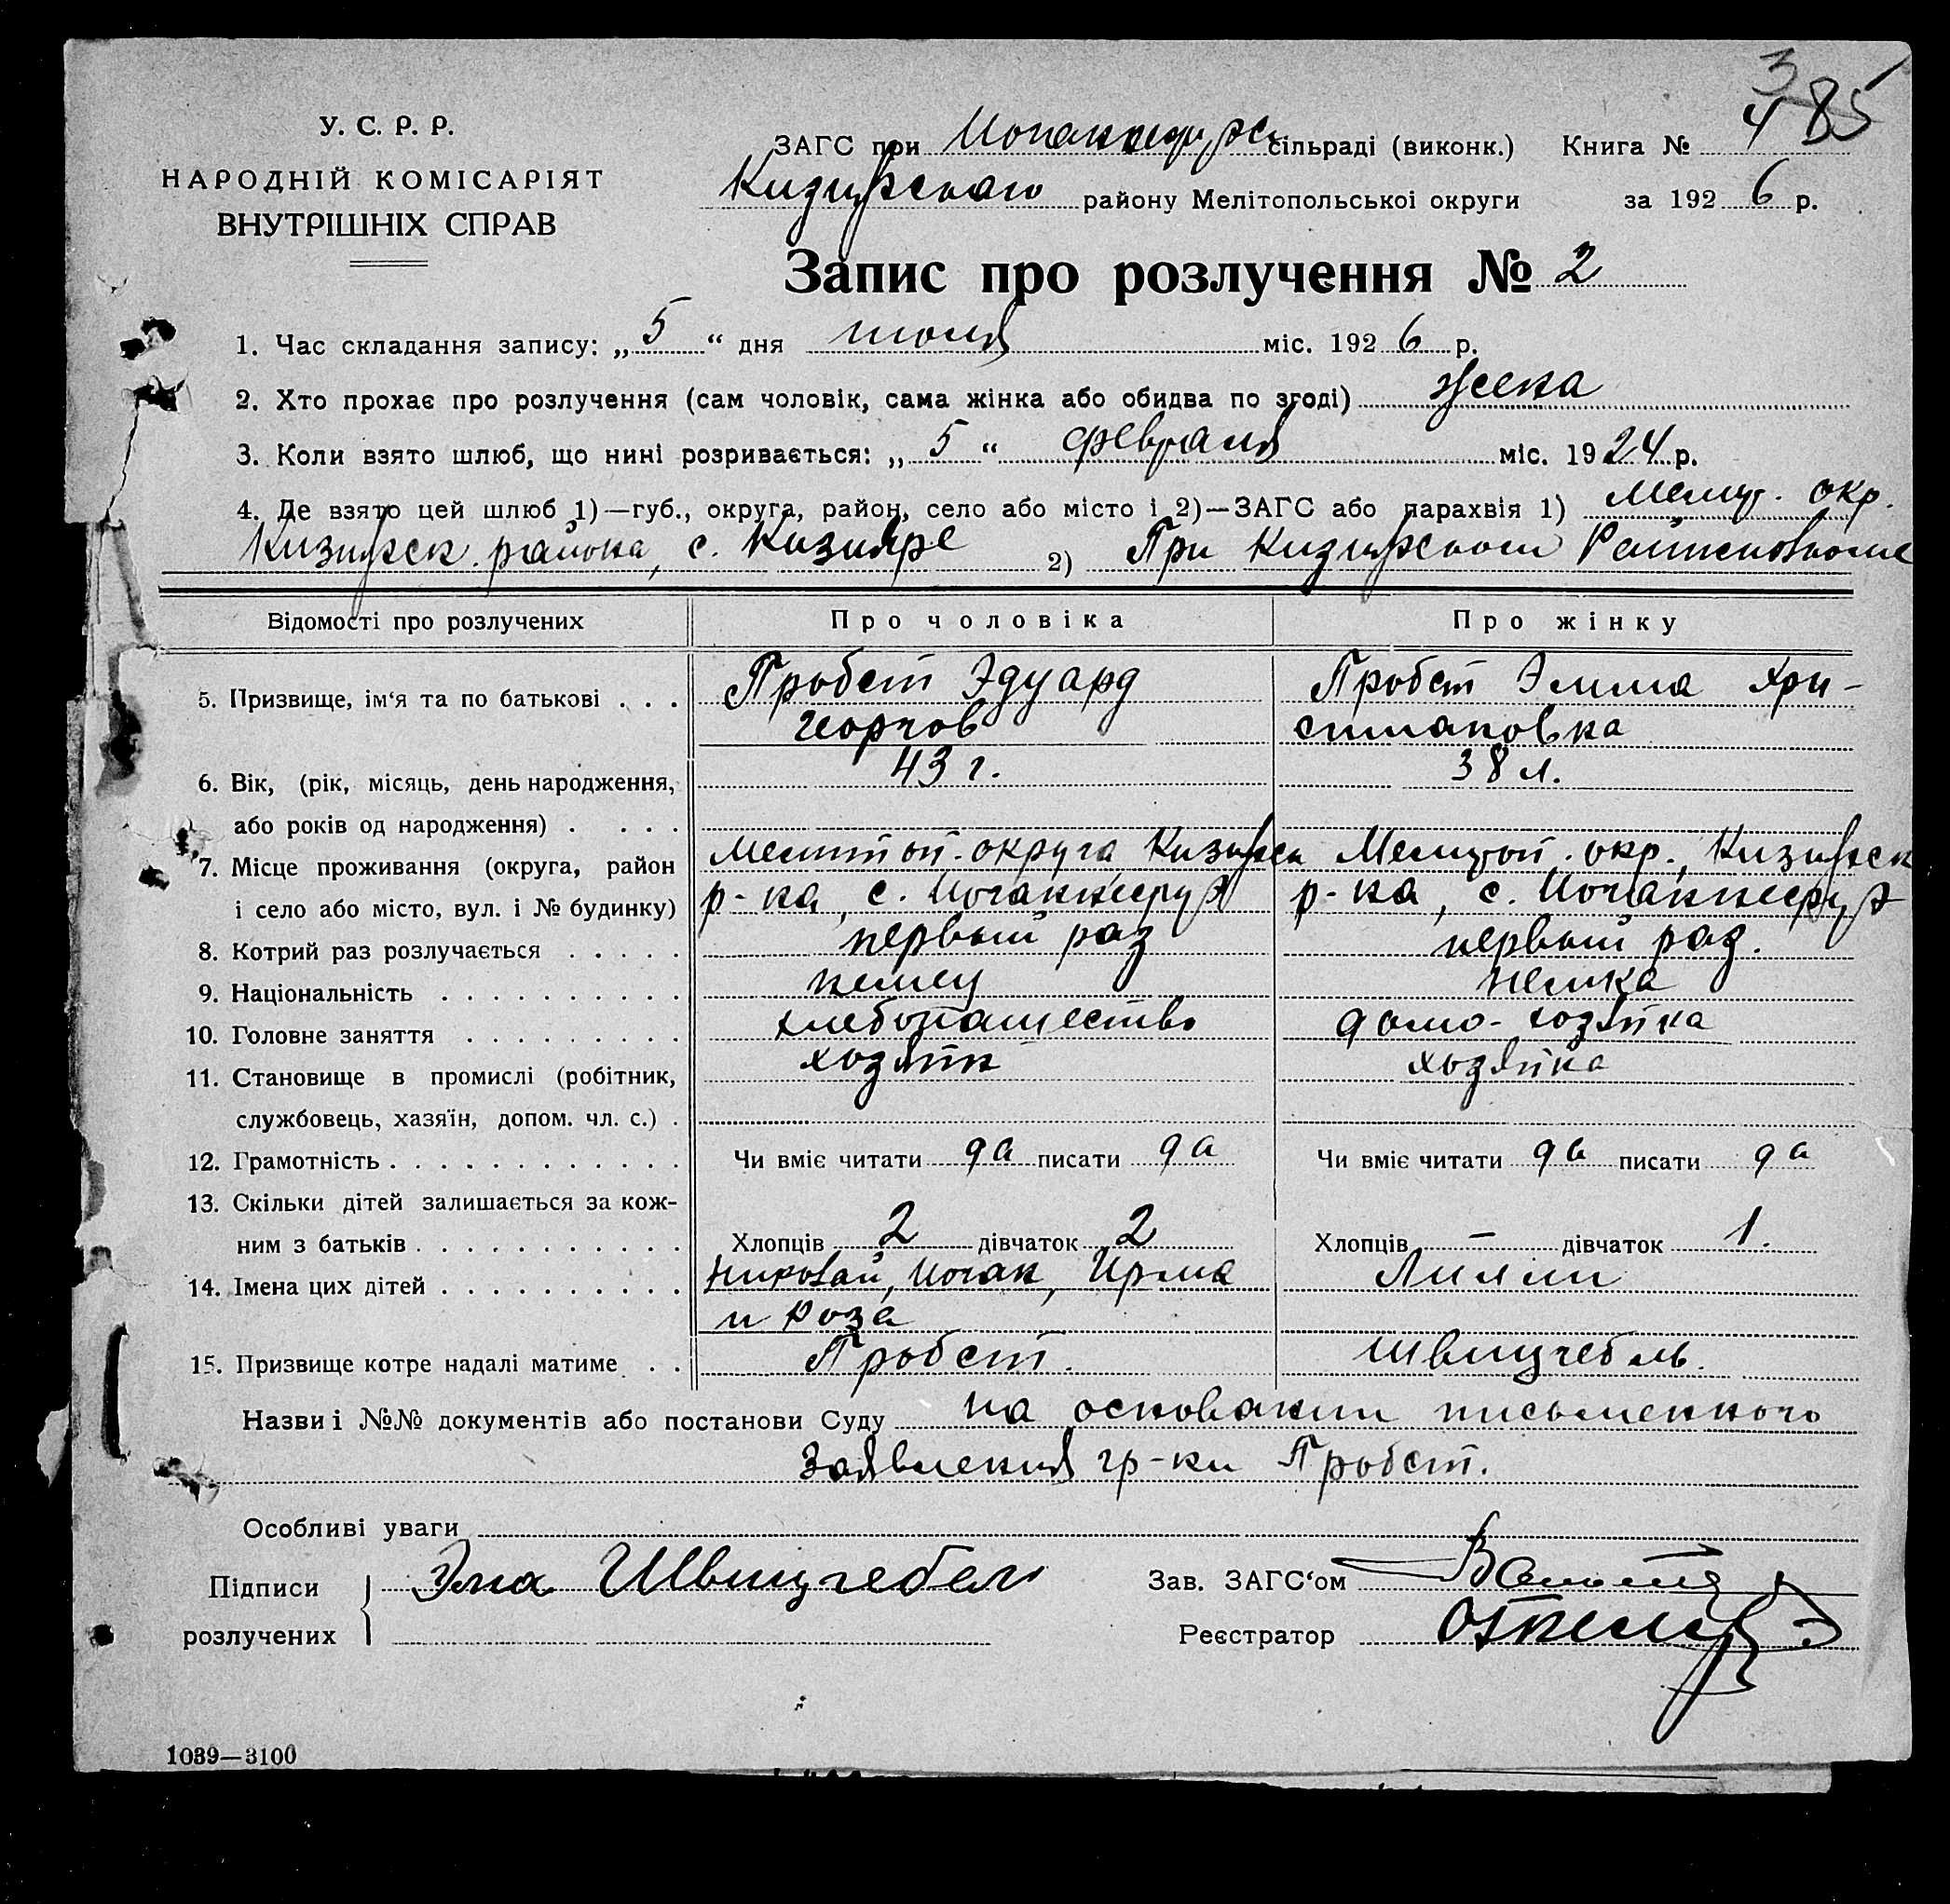 3
485
У. С. Р. Р.
НАРОДНІЙ КОМІСАРІЯТ
ВНУТРІШНІХ СПРАВ
ЗАГС при сільраді (виконк.) Книга №
Кизиярского району Мелітопольскої округи за 1926 р.
Запис про розлучення № 2
1. Час складання запису: „5“ дня июля міс. 1926 р.
2. Хто прохає про розлучення (сам чоловік, сама жінка або обидва по згоді) жена
3. Коли взято шлюб, що нині розривається: „5“ февраля міс. 1924 р.
4. Де взято цей шлюб 1)—губ., округа, район, село або місто і 2)—ЗАГС або парахвія 1) Мелит. окр.
Кизиярск. района, с. Кизияре 2) При Кизиярском Райисполкоме
Відомості про розлучених Про чоловіка Про жінку
5. Призвище, ім‘я та по батькові . . . Пробст Эдуард Пробст Эмма Хри-
Георгов стиановна
6. Вік, (рік, місяць, день народження, 43 г. 38 л.
або років од народження) . . . .
7. Місце проживання (округа, район Мелитоп. округа Кизиярск Мелитоп. окр., Кизиярск
і село або місто, вул. і № будинку) р-на, с. р-на, с.
8. Котрий раз розлучається . . . . . первый раз первый раз.
9. Національність . . . . . . . . . . немец немка
10. Головне заняття . . . . . . . . . хлебопашество домо-хозяйка
11. Становище в промислі (робітник, хозяин хозяйка
службовець, хазяїн, допом. чл. с.) .
12. Грамотність . . . . . . . . . . . . Чи вміє читати да писати да Чи вміє читати да писати да
13. Скільки дітей залишається за кож-
ним з батьків . . . . . . . . . . . Хлопців 2 дівчаток 2 Хлопців — дівчаток 1.
14. Імена цих дітей . . . . . . . . . . Николай, Иоган, Ирма Лилли
и Роза
15. Призвище котре надалі матиме . . Пробст. Швицгебль.
Назви і №№ документів або постанови Суду на основании письменного
заявления гр-ки Пробст.
Особливі уваги
Підписи Эма Швицгебель Зав. ЗАГС‘ом
розлучених Реєстратор
1039—3100